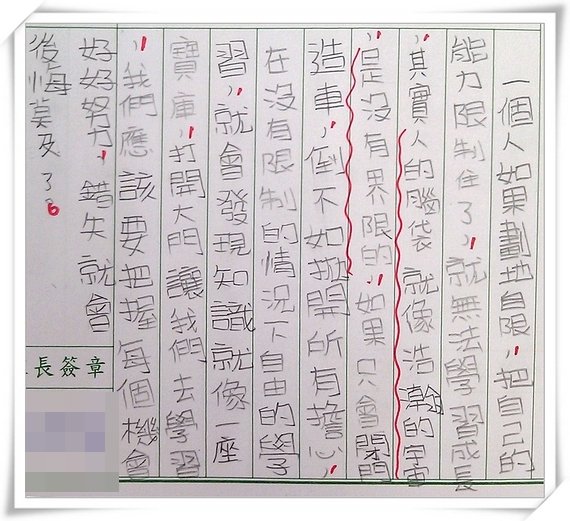 一個人如果劃地自限，把自己的
能力限制住了，就無法學習成長
，其實人的腦袋就像浩瀚的宇宙
，是沒有界限的，如果只會閉門
造車，倒不如拋開所有擔心，
在沒有限制的情況下自由的學
習，就會發現知識就像一座
寶庫，打開大門讓我們去學習
，我們應該要把握每個機會
好好努力，錯失就會
後悔莫及了。
長簽章